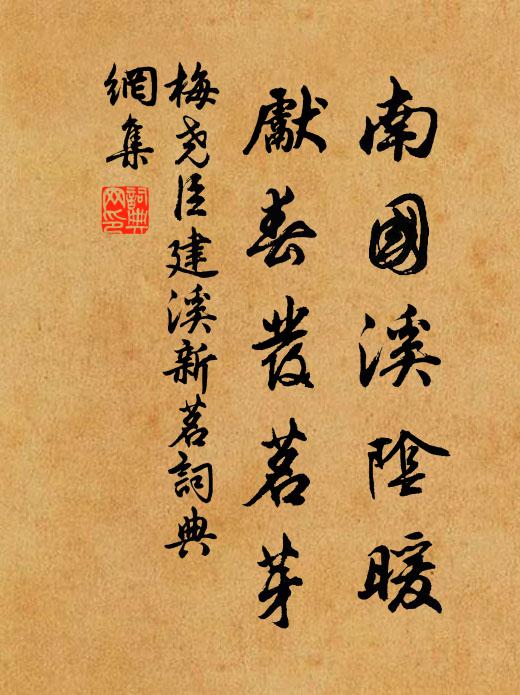 南國溪陰暖
獻春發茗芽
梅尧臣建溪新茗詞典
網集
詞典
网印